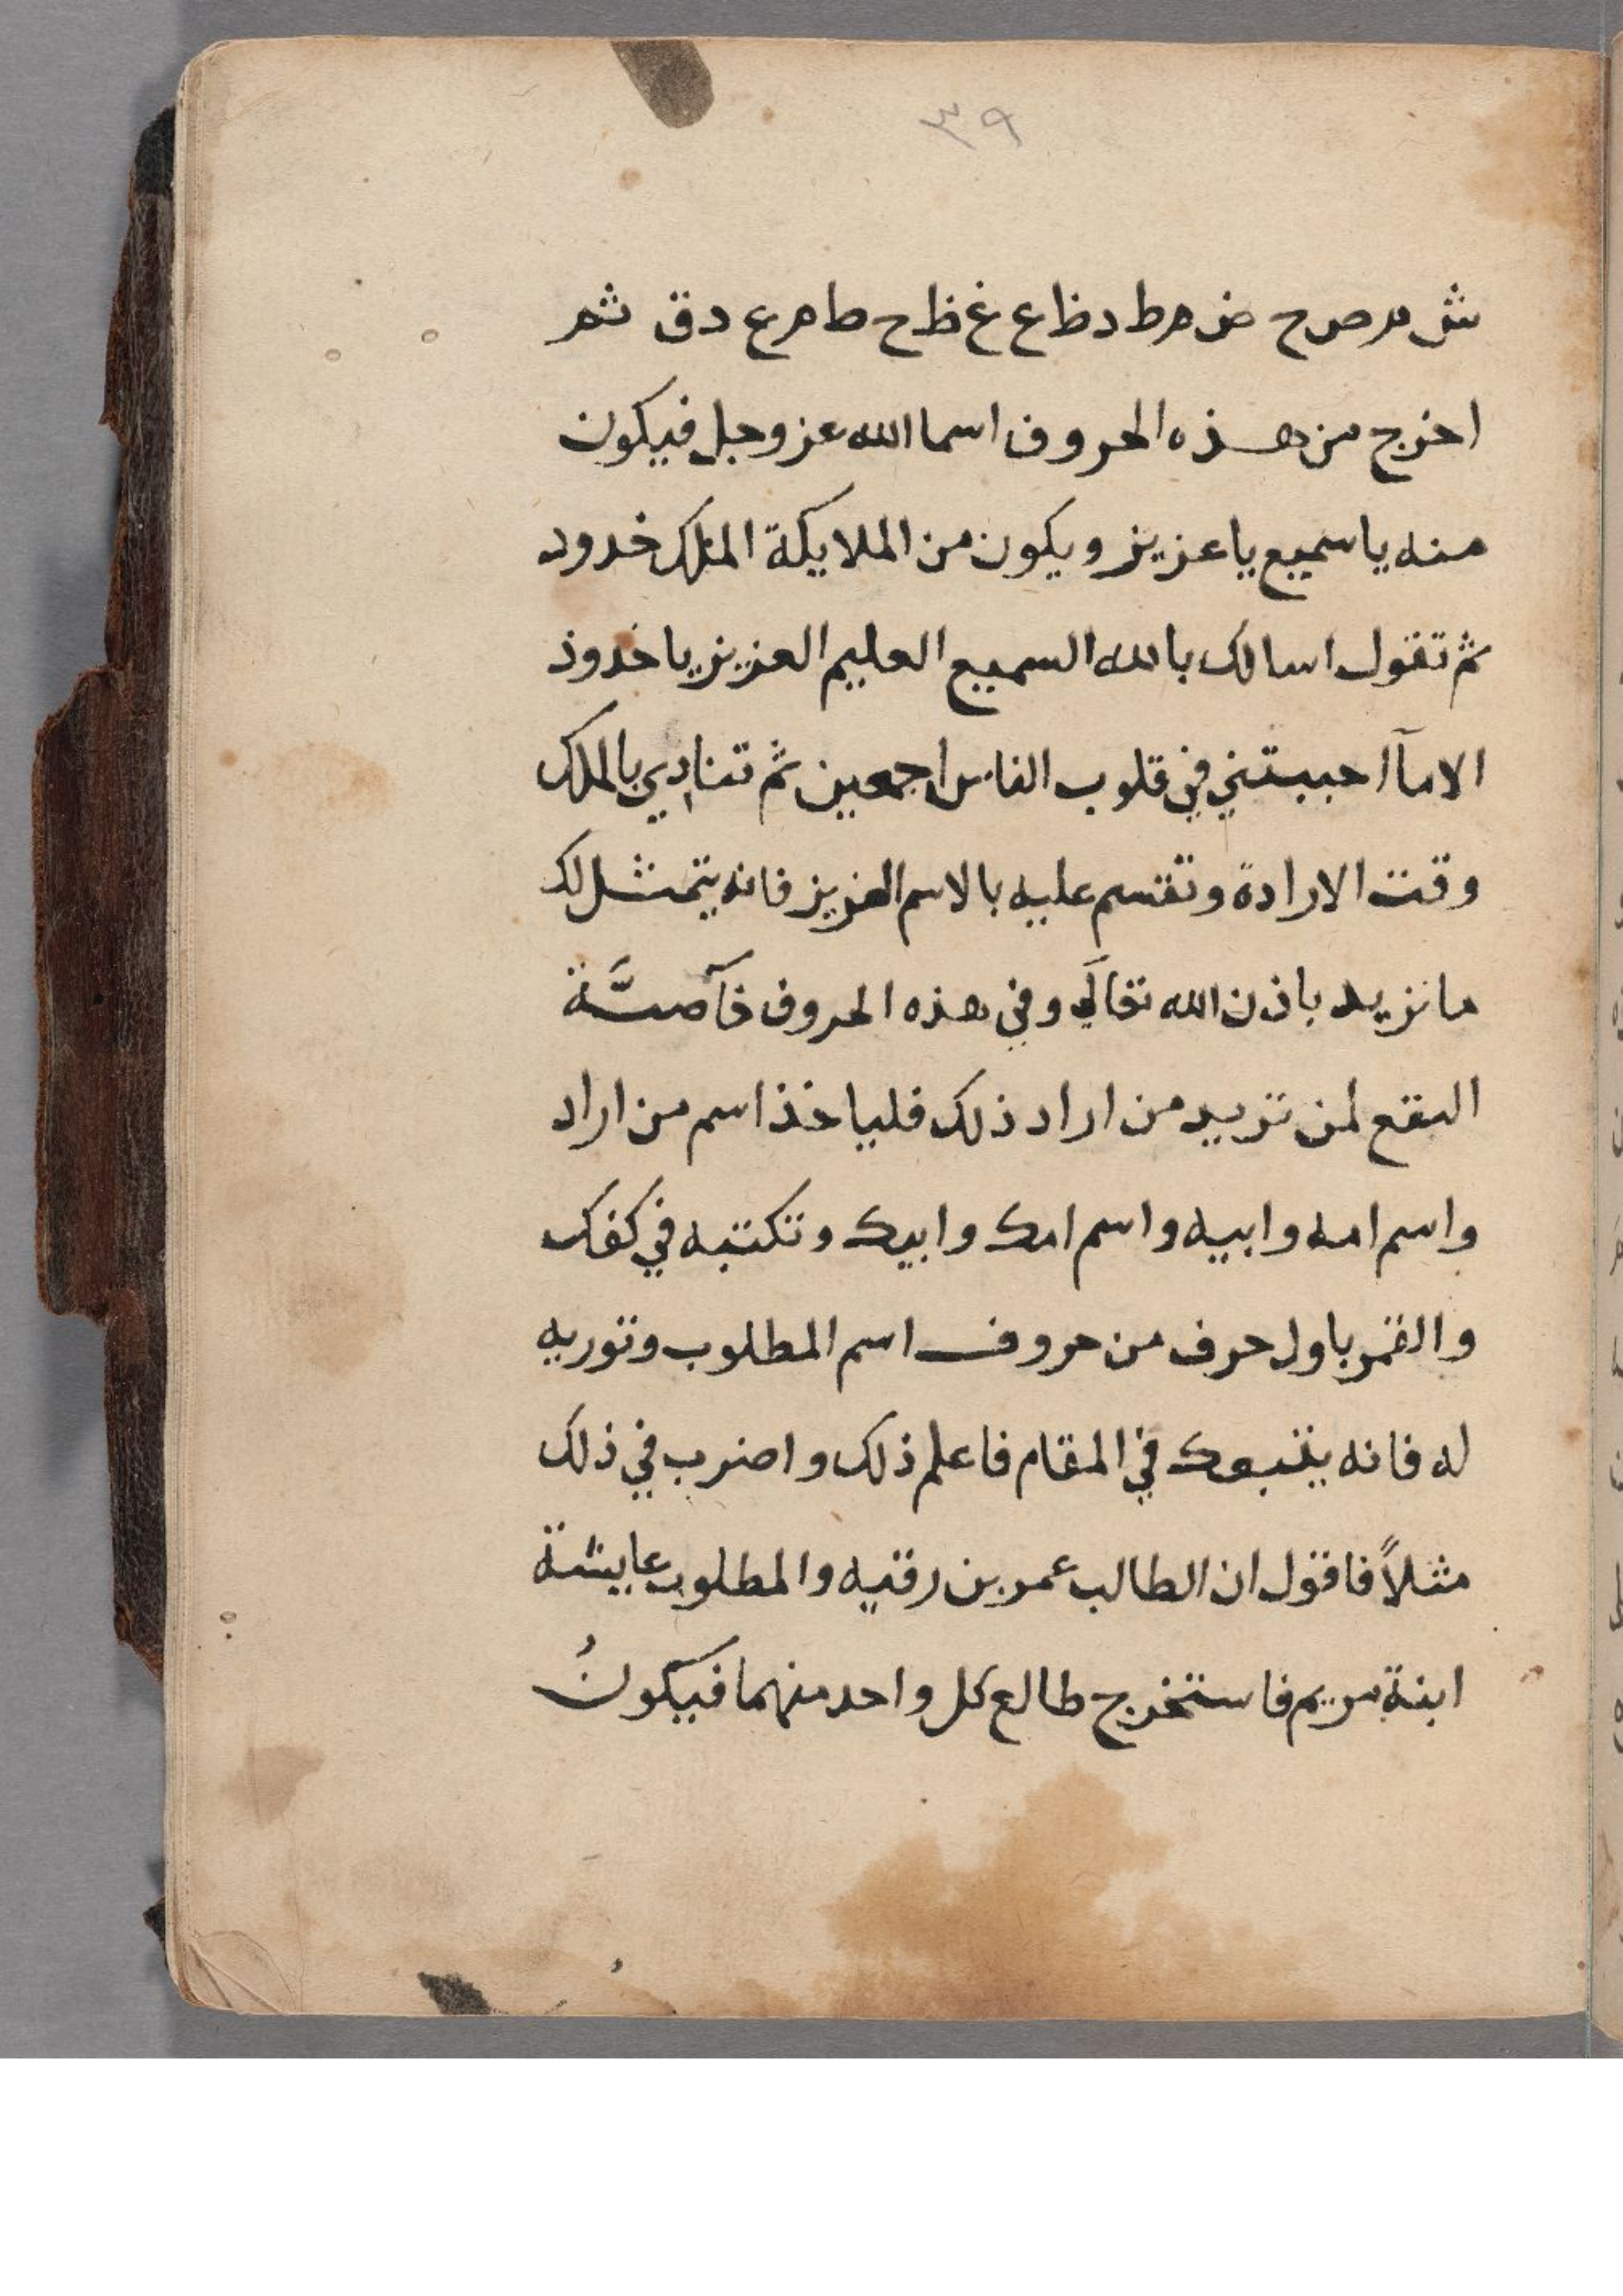 ٣٩
ش م ص ح ض م ط د ظ ع غ ظ ح ط م ع د ق ثم
اخرج من هذه الحروف اسما الله عز وجل فيكون
منه يا سميع يا عزيز ويكون من الملايكة الملك خدود
ثم تقول اسالك بالله السميع العليم العزيز يا خدود
الا مآ احببتني في قلوب الناس اجمعين ثم تنادي بالملك
وقت الارادة وتقسم عليه بالاسم العزيز فانه يتمثل لك
ما تريد باذن الله تعالى وفي هذه الحروف خآصيَّة
لمن تريد من اراد ذلك فلياخذ اسم من اراد
واسم امه وابيه واسم امك وابيك وتكتبه في كفك
والقمر باول حرف من حروف اسم المطلوب وتوريه
له فانه يتبعك في المقام فاعلم ذلك واضرب في ذلك
مثلاً فاقول ان الطالب عمر بن رقيه والمطلوب عايشة
ابنة مريم فاستخرج طالع كل واحد منهما فيكونُ